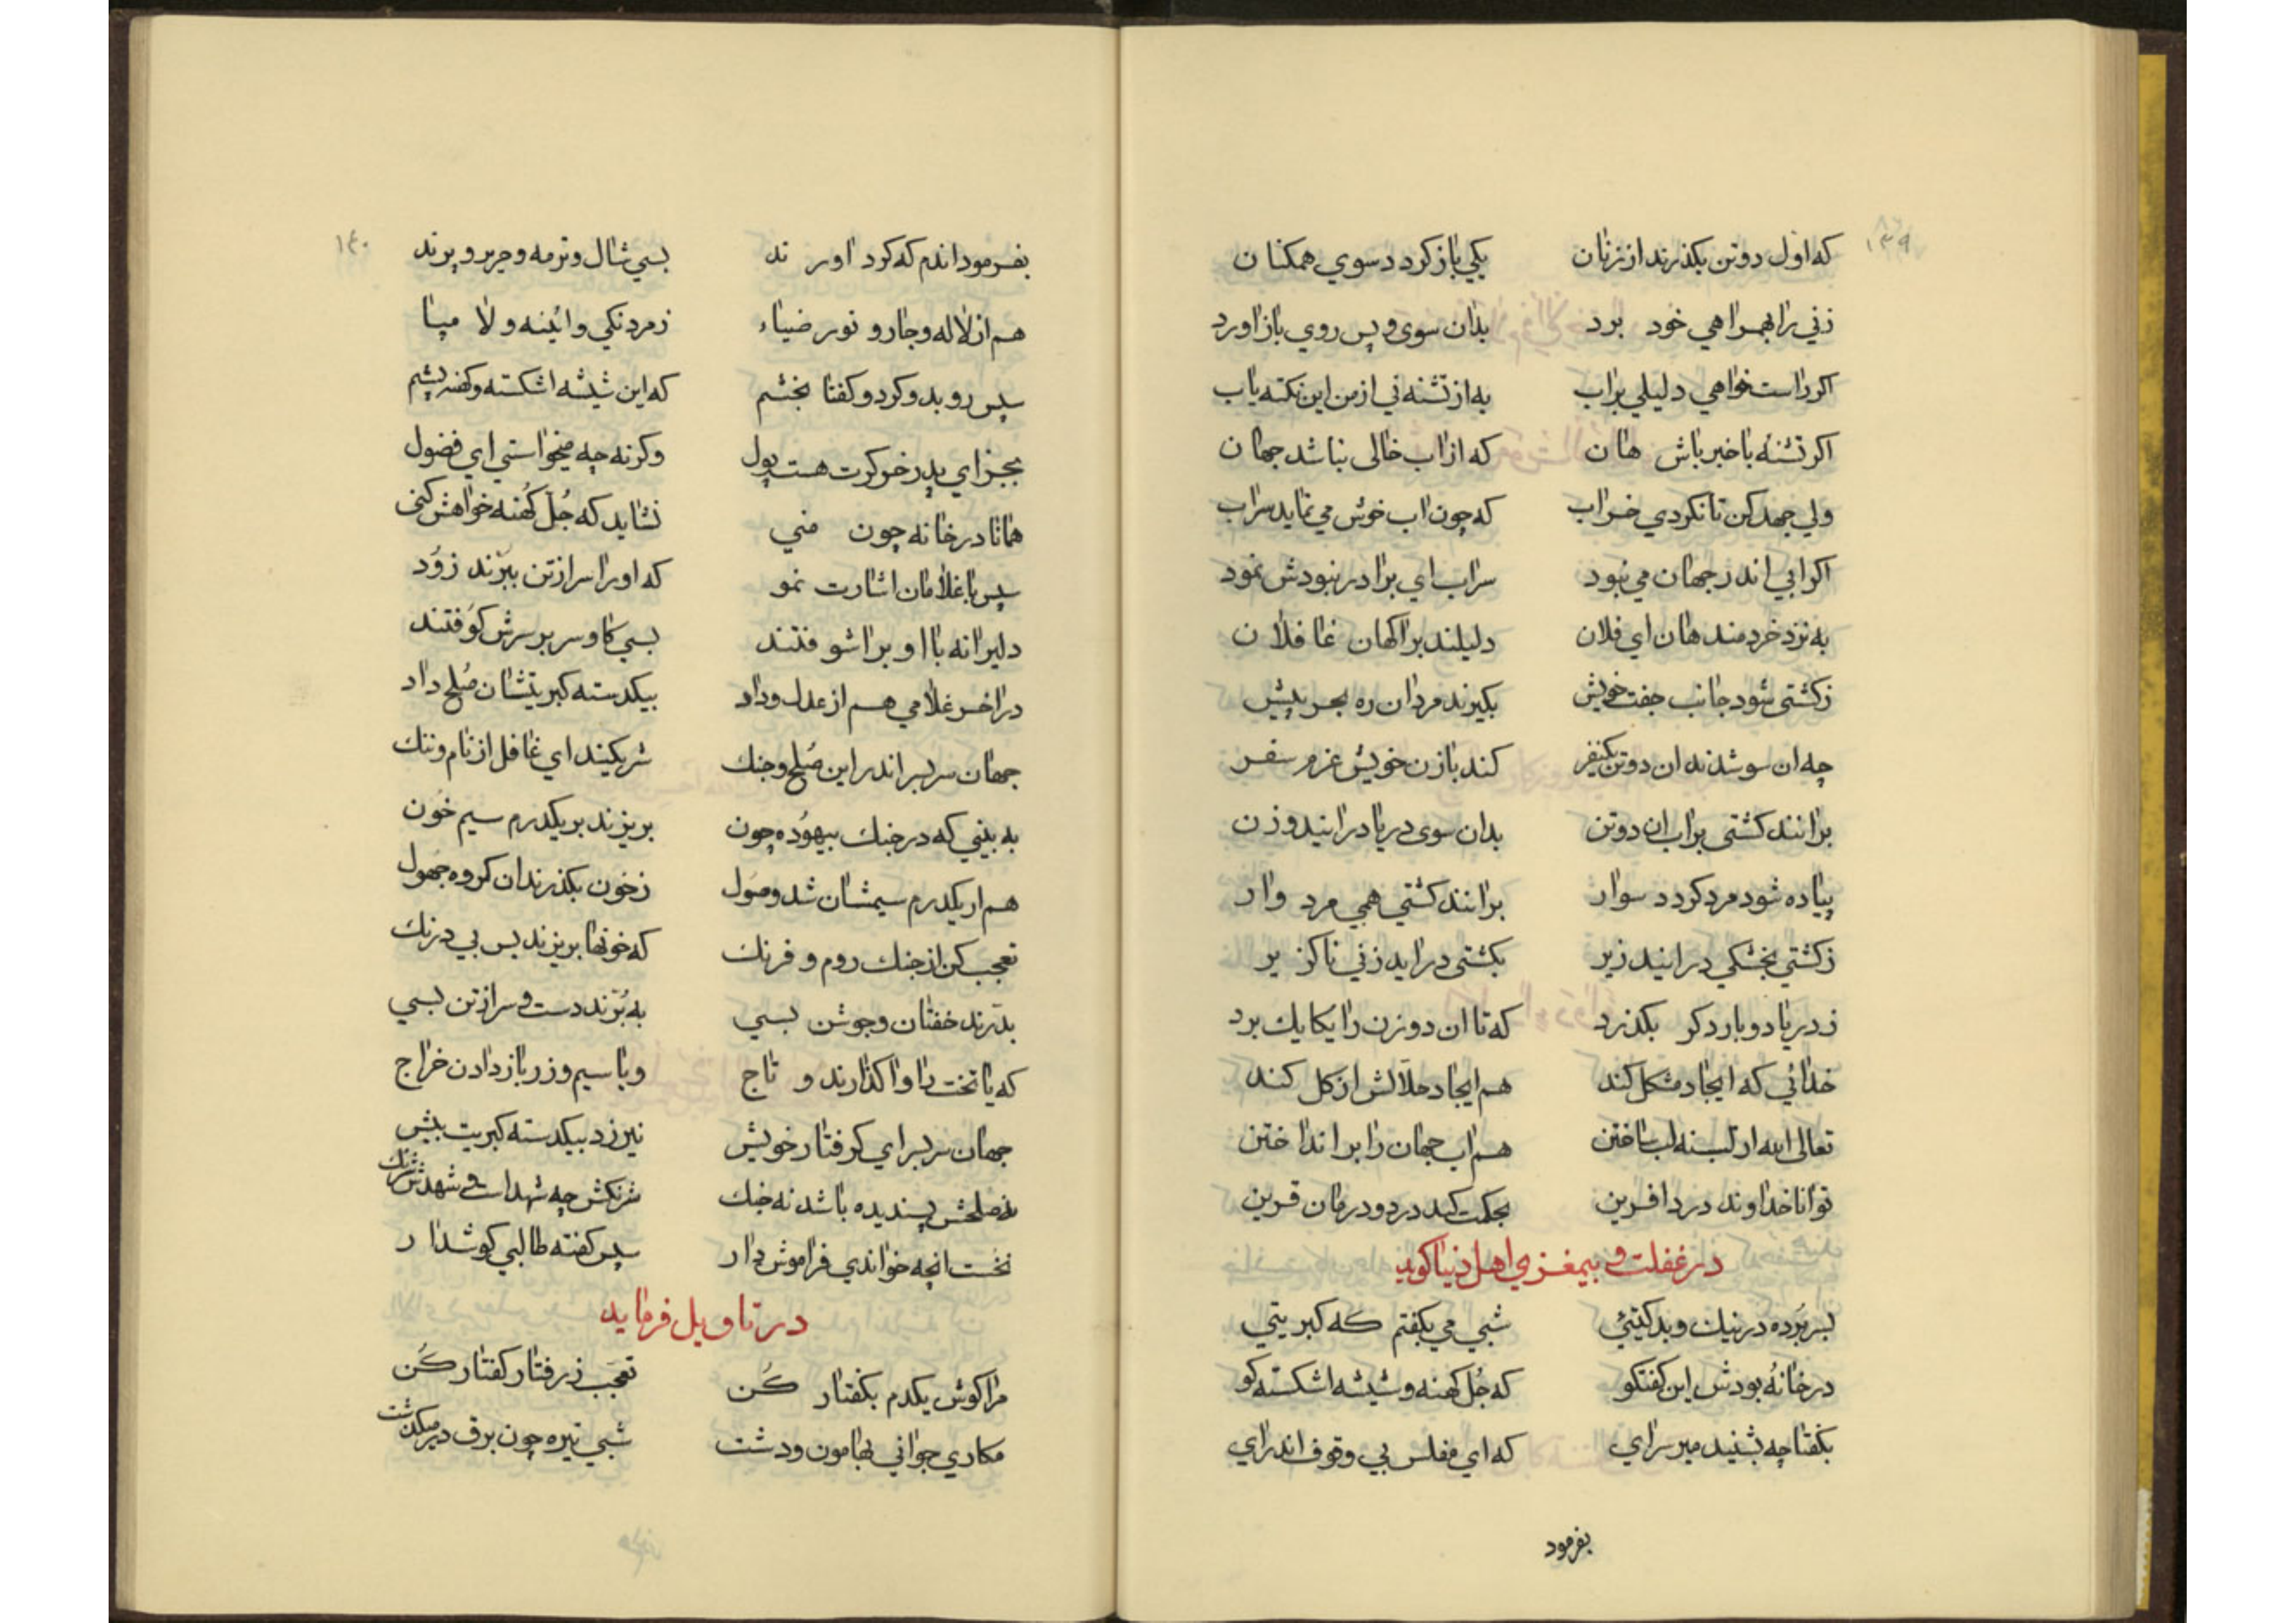 ۱۳۹
که اول دوتن بکذرند از زنان یکی باز کردد سوي همکنان
زني را بهمراهي خود برد بدان سوی و پس روي باز اورد
اکر راست خواهي دلیلي براب به از تشنه ني از من این نکته یاب
اکر تشنه باخبر باش هان که از اب خالی نباشد جهان
ولي جهد کن تا نکردي خراب که چون اب خوش مي نماید سراب
اکر ابي اندر جهان مي نبود سراب اي برادر نبودش نمود
به نزد خردمند هان اي فلان دلیلند بر اکهان غافلان
ز کشتی شود جانب جفت خویش بکیرند مردان ره بحر پیش
چه ان سو شدند ان دوتن یکنفر کند با زن خویش عزم سفر
برانند کشتی براب ان دوتن بدان سوی دریا درایند و زن
پیاده شود مرد کردد سوار برانند کشتي همي مرد وار
ز کشتي بخشکي درایند زیر بکشتی دراید زني ناکزیر
ز دریا دو بار دکر بکذرد که تا ان دو زن را یکایك برد
خدائي که ایجاد مشکل کند هم ایجاد حلالش از کل کند
تعالی الله از تشنه لب ساختن هم اب جهان را برانداختن
توانا خداوند درد افرین بحکمت کند درد و درمان قرین
در غفلت و بیمغزي اهل دنیا کوید
بسر برده در نیك و بد کیتئي شبي مي بکفتم که کبریتي
در خانهٔ بودش این کفتکو که جُل کهنه و شیشه اشکسته کو
بکفتا چه بشنید میر سراي که اي مفلس بي وقوف اندراي
بفرمود
۱۴۰
بفرمود اندم که کرد اورند بسي شال و ترمه و حریر و پرند
هم از لاله و جار و نور ضیاء ز مردنکي و ائینه و لا مپا
سپس رو بدو کرد و کفتا بخشم که این شیشه اشکسته و کهنه پشم
بجز اي پدر خو کرت هست پول وکرنه چه میخواستي اي فضول
همانا در خانه چون مني نشاید که جُل کُهنه خواهش کنی
سپس با غلامان اشارت نمو که او را سر از تن ببرّند زوُد
دلیرانه با او براشوفتند بسي کاو سر بر سرش کوُفتند
در اخر غلامي هم از عدل و داد بیکدسته کبریتشان صُلح داد
جهان سربسر اندر این صُلح و جنك شریکیند اي غافل از نام و ننك
به بیني که در جنك بیهوُده چون بریزند بر یکدرم سیم خون
هم ار یکدرم سیمشان شد وصول ز خون بکذرند ان کروه جَهول
تعجب کن از جنك روم و فرنك که خونها بریزند بس بي درنك
بدّرند خفتان و جوشن بسي به بُرّند دست و سر از تن بسي
که یا تخت را واکذارند و تاج و یا سیم و زر باز دادن خراج
جهان سربسر اي کرفتار خویش نیرزد بیکدسته کبریت بیش
نه صلحش پسندیده باشد نه جنك شرنکش چه شهد است و شهدش شرنك
نخست انچه خواندي فراموش دار سپس کفته طالبي کوشدار
در تاویل فرماید
مرا کوش یکدم بکفتار کُن تعجب ز رفتار کفتار کُن
مکاري جواني بهامون و دشت شبي تیره چون برق در میکذشت